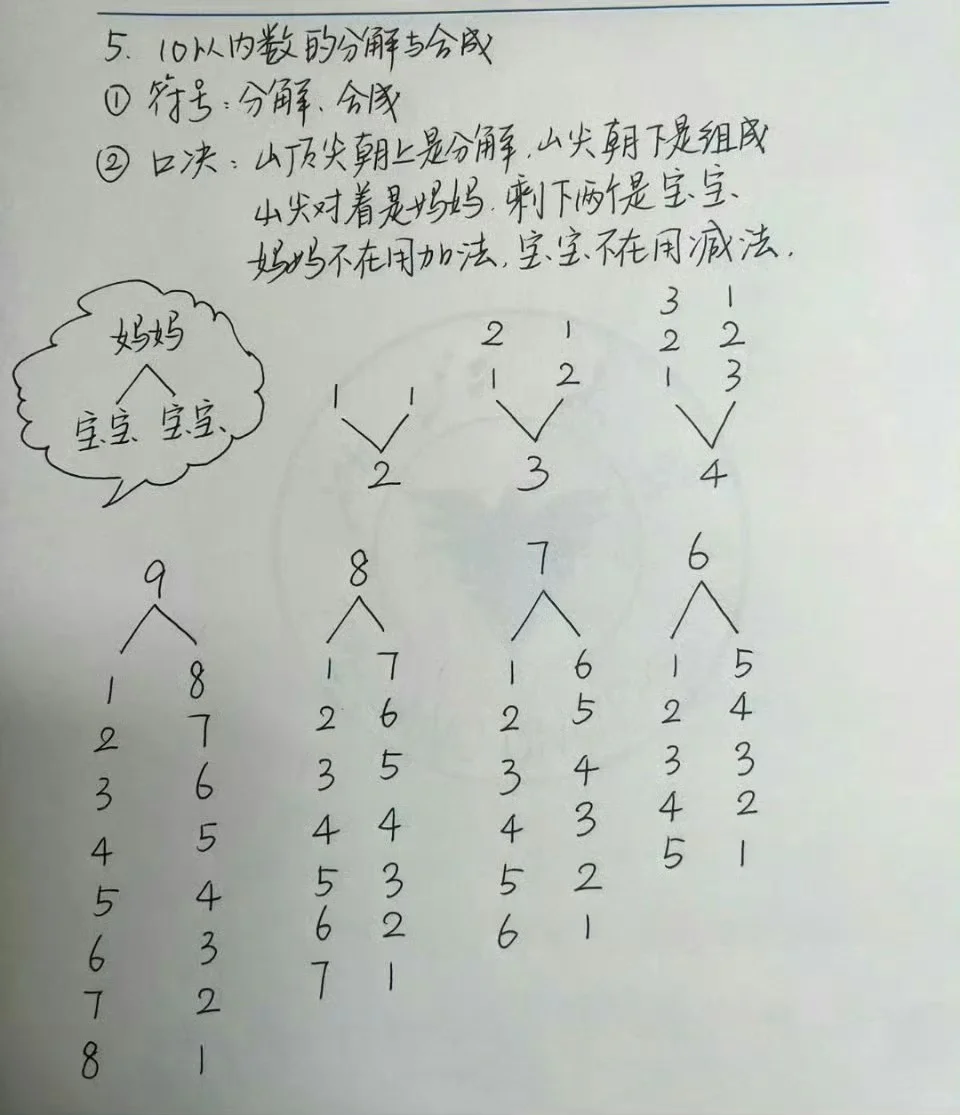 5. 10以内数的分解与合成
① 符号：分解、合成
② 口决：山顶尖朝上是分解，山尖朝下是组成
山尖对着是妈妈．剩下两个是宝宝、
妈妈不在用加法，宝宝不在用减法．
妈妈
宝宝 宝宝
1 1
2
2 1
1 2
3
3 1
2 2
1 3
4
9
1 8
2 7
3 6
4 5
5 4
6 3
7 2
8 1
8
1 7
2 6
3 5
4 4
5 3
6 2
7 1
7
1 6
2 5
3 4
4 3
5 2
6 1
6
1 5
2 4
3 3
4 2
5 1